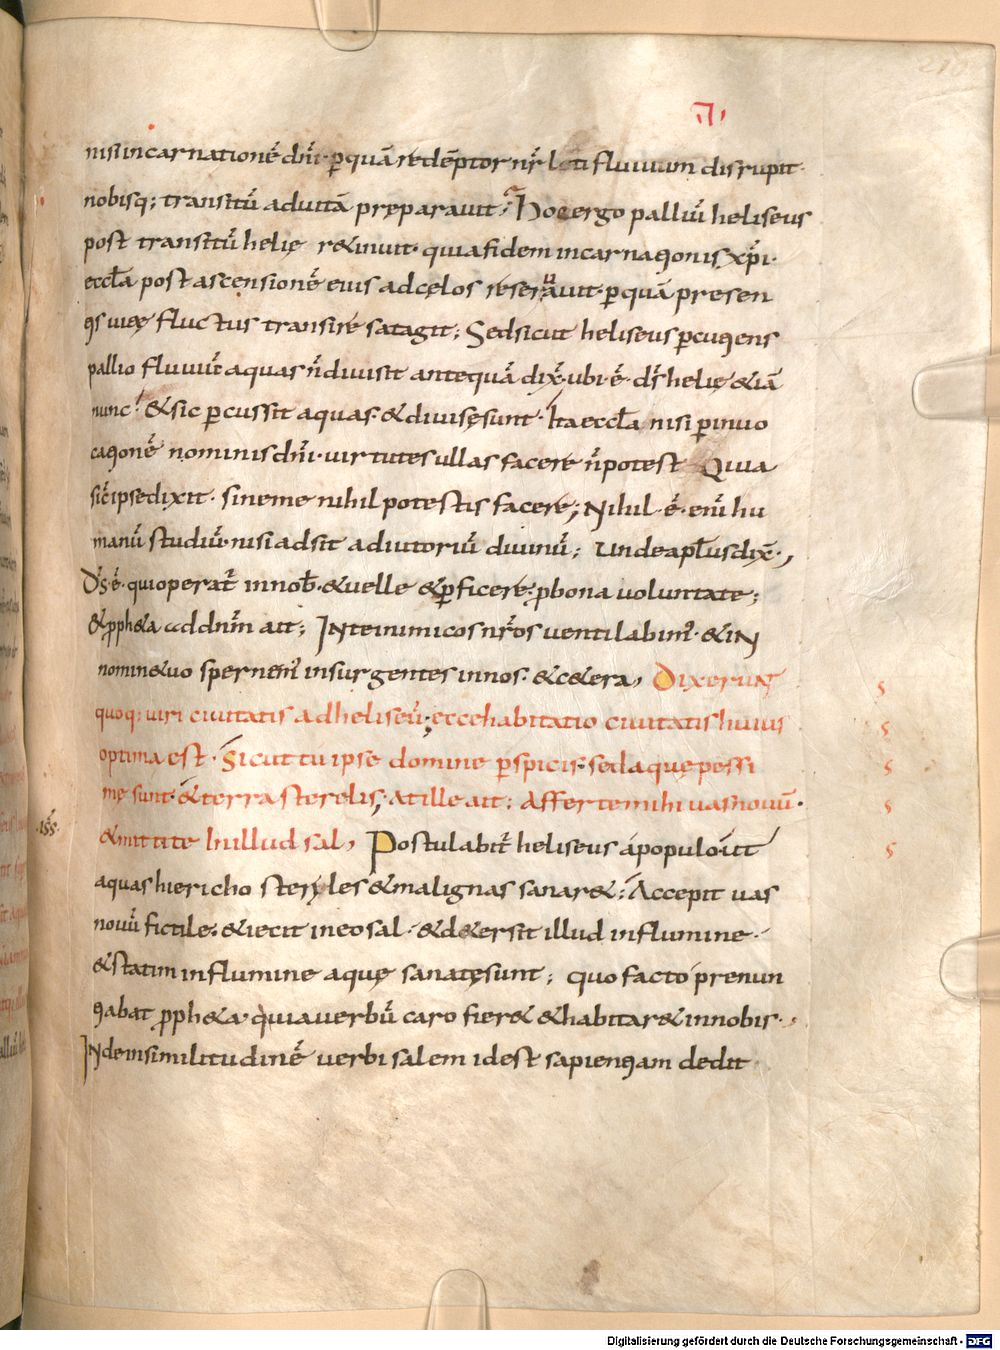 210
nisi incarnationē dn̄i· ꝑquā redēptor nr̄ leti fluuium disrupit·
nobisq; transitū ad uitā pręparauit; Hoc ergo palliū heliseus
post transitū helię r&inuit· quia fidem incarnationis xp̄i·
eccl̄a post ascensionē eius ad cęlos reserauit· ꝑquā presen
tis uitę fluctus transire satagit; Sed sicut heliseus ꝑcutiens
pallio fluuiū & aquas n̄ diuisit antequā dix̄· ubi· ē· ds̄ helię &iā
nunc· & sic ꝑcussit aquas· & diuisę sunt· Ita eccl̄a nisi ꝑ inuo
cationē nominis dn̄i· uirtutes ullas facere n̄ potest Quia
sic̄ ipse dixit· sine me nihil potestis facere; Nihil· ē· eni̅ hu
manū studiū· nisi adsit adiutoriū diuinū; Unde apl̄us dix̄·,
Ds̄· ē· qui operat̄ in nob̄· & uelle & ꝑficere· ꝓ bona uoluntate;
& ꝓph&a ad dn̄m ait; In te inimicos nr̄os uentilabim̄· & in
nomine tuo spernem̄ insurgentes in nos· & c&era, Dixerunt
quoq; uiri ciuitatis ad heliseū; ecce habitatio ciuitatis huius
optima est· Sicut tu ipse domine ꝑspicis· sed aquę pessi
mę sunt· & terra sterelis; At ille ait; Afferte mihi uas nouū·
& mittite in illud sal, Postulabit̄ heliseus á populo ut
aquas hiericho steryles & malignas sanar&; Accepit uas
nouū fictile· & iecit in eo sal· & d&ersit illud in flumine·
& statim in flumine aquę sanatę sunt; quo facto prenun
tiabat ꝓph&a· quia uerbū caro fier& & habitar& in nobis·,
Inde in similitudinē uerbi salem id est sapientiam dedit·
Digitalisierung gefördert durch die Deutsche Forschungsgemeinschaft - DFG